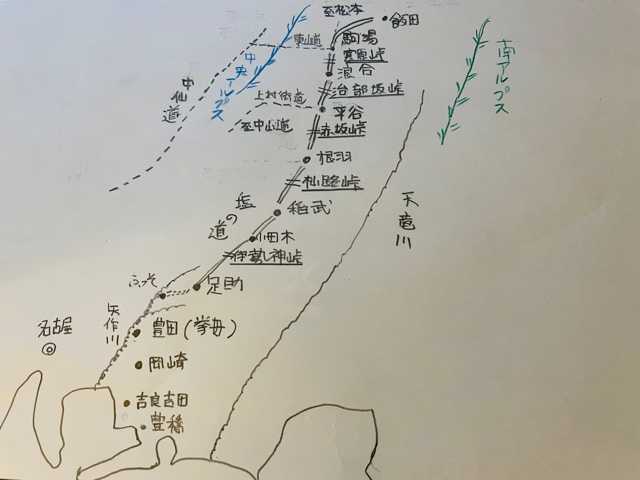 至松本
飯田
東山道
駒場
寒原峠
中央アルプス
南アルプス
中仙道
浪合
治部坂峠
上村街道
平谷
至中山道
赤坂峠
根羽
杣路峠
天竜川
塩の道
稲武
小田木
伊勢神峠
足助
ふっそ
矢作川
名古屋
豊田(挙母)
岡崎
吉良吉田
豊橋